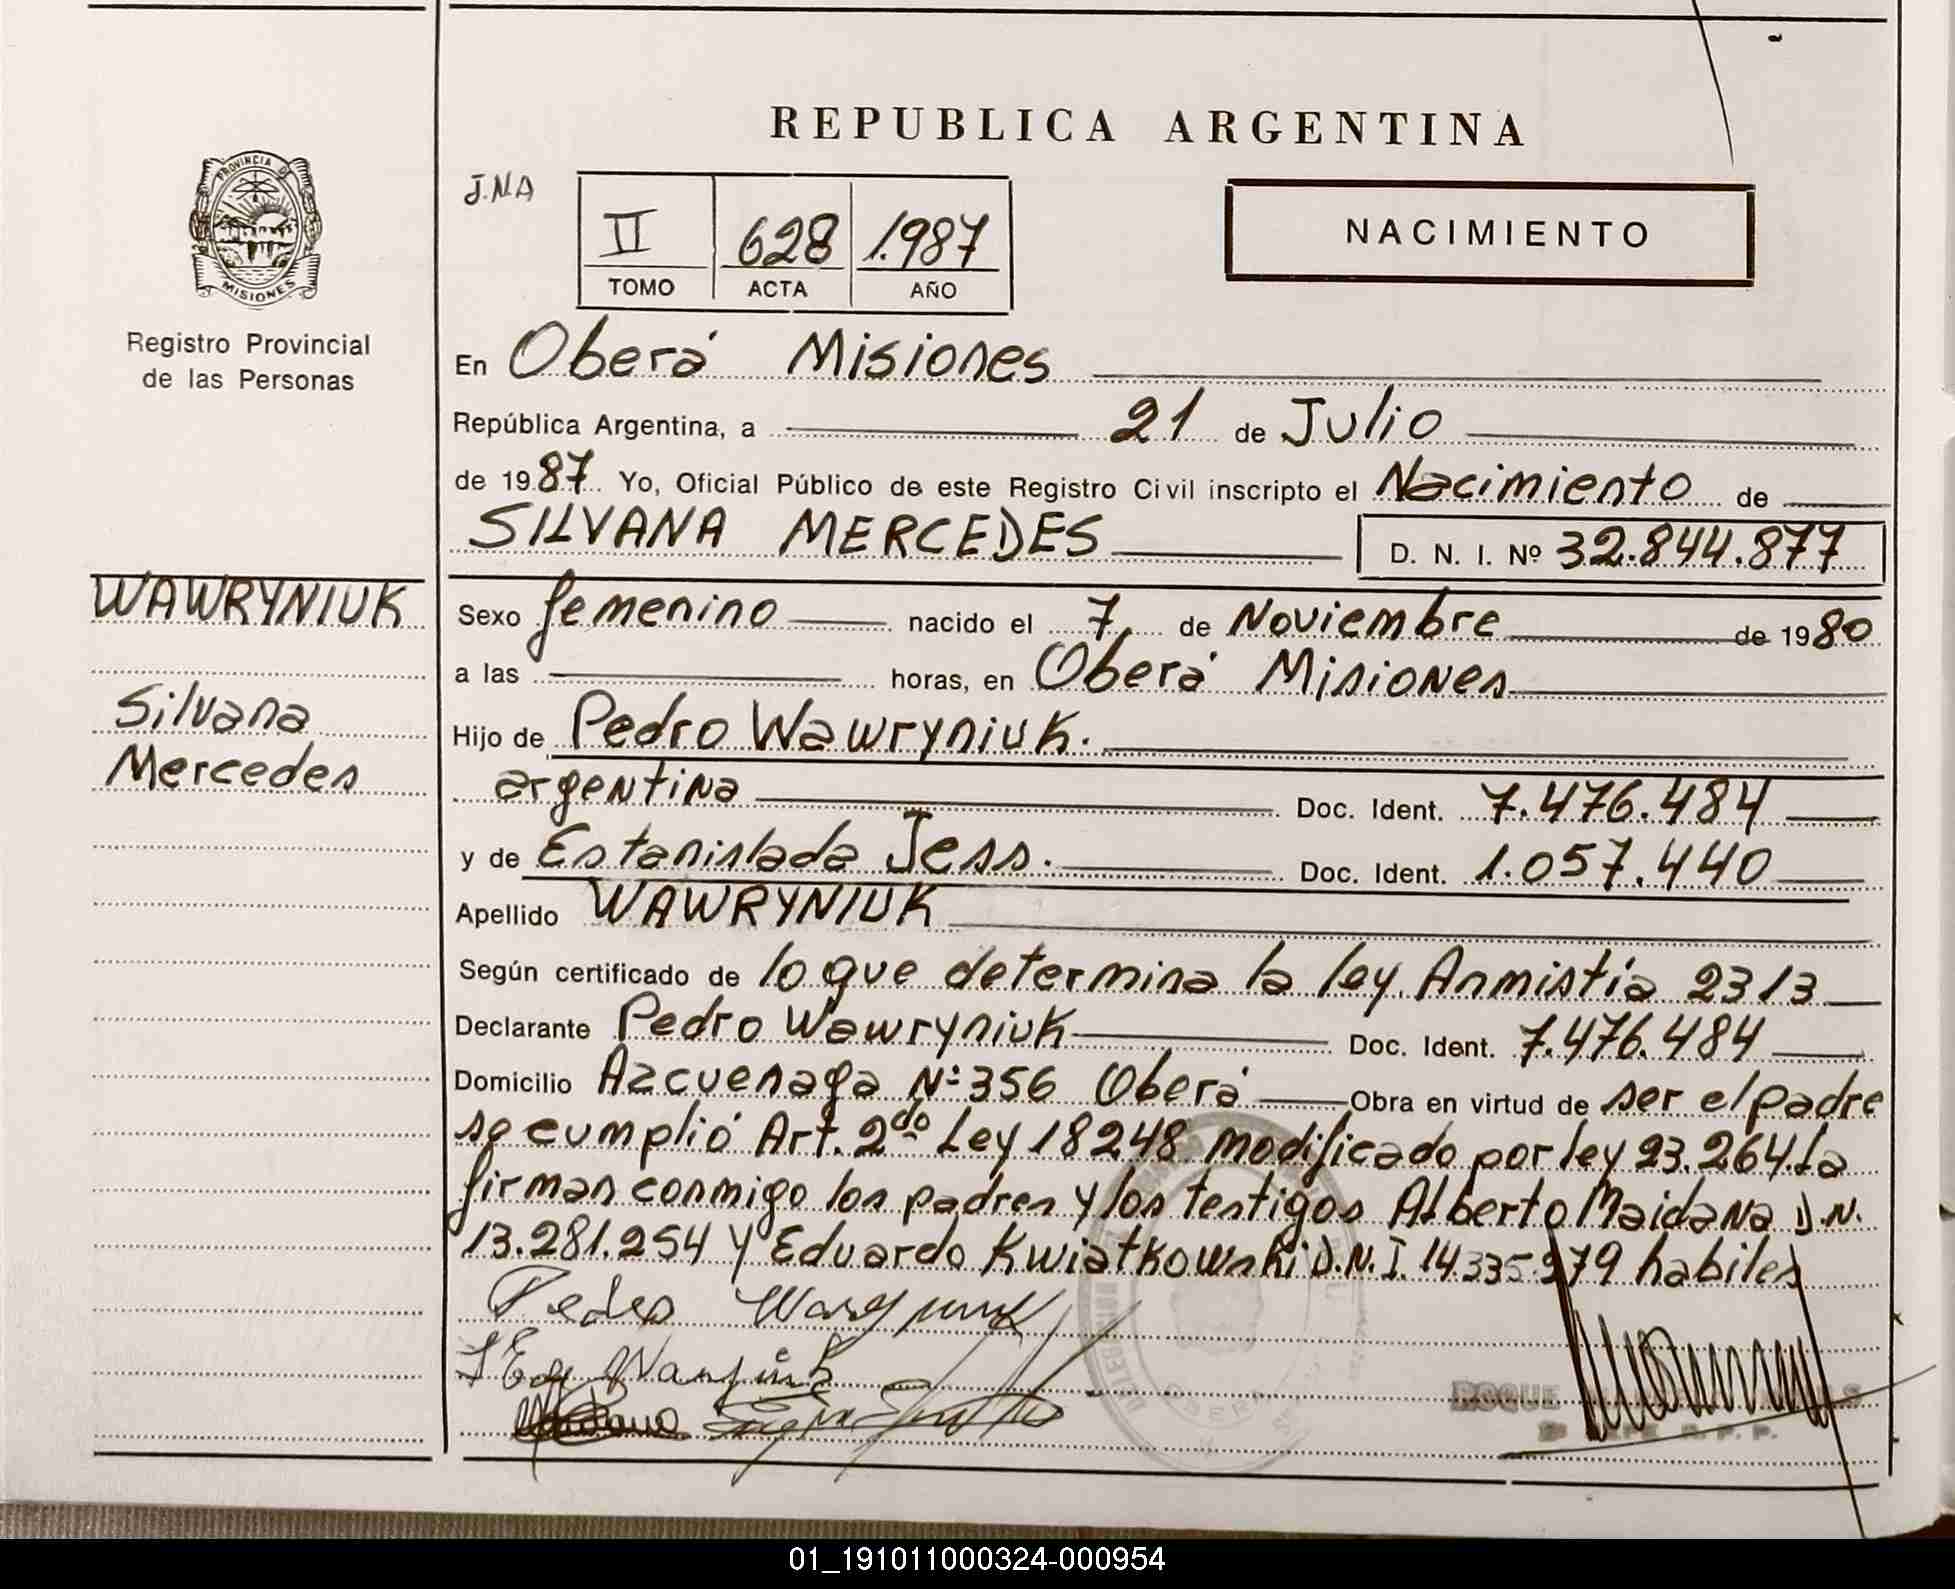 REPUBLICA ARGENTINA
PROVINCIA DE
MISIONES
Registro Provincial
de las Personas
J.NA
II 628 1.987
TOMO ACTA AÑO
NACIMIENTO
En Oberá Misiones
República Argentina, a 21 de Julio
de 1987 Yo, Oficial Público de este Registro Civil inscripto el Nacimiento de
SILVANA MERCEDES D. N. I. Nº 32.844.877
WAWRYNIUK
Silvana
Mercedes
Sexo femenino nacido el 7 de Noviembre de 1980
a las horas, en Oberá Misiones
Hijo de Pedro Wawryniuk.
argentina Doc. Ident. 7.476.484
y de Estanislada Jess. Doc. Ident. 1.057.440
Apellido WAWRYNIUK
Según certificado de lo que determina la ley Anmistía 2313
Declarante Pedro Wawryniuk Doc. Ident. 7.476.484
Domicilio Azcuenaga Nº 356 Oberá Obra en virtud de ser el padre
se cumplió Art. 2do Ley 18248 modificado por ley 23.264. La
firman conmigo los padres y los testigos Alberto Maidana D.N.
13.281.254 y Eduardo Kwiatkowski D.N.I. 14.335.979 habiles
Pedro
ROQUE
01_191011000324-000954